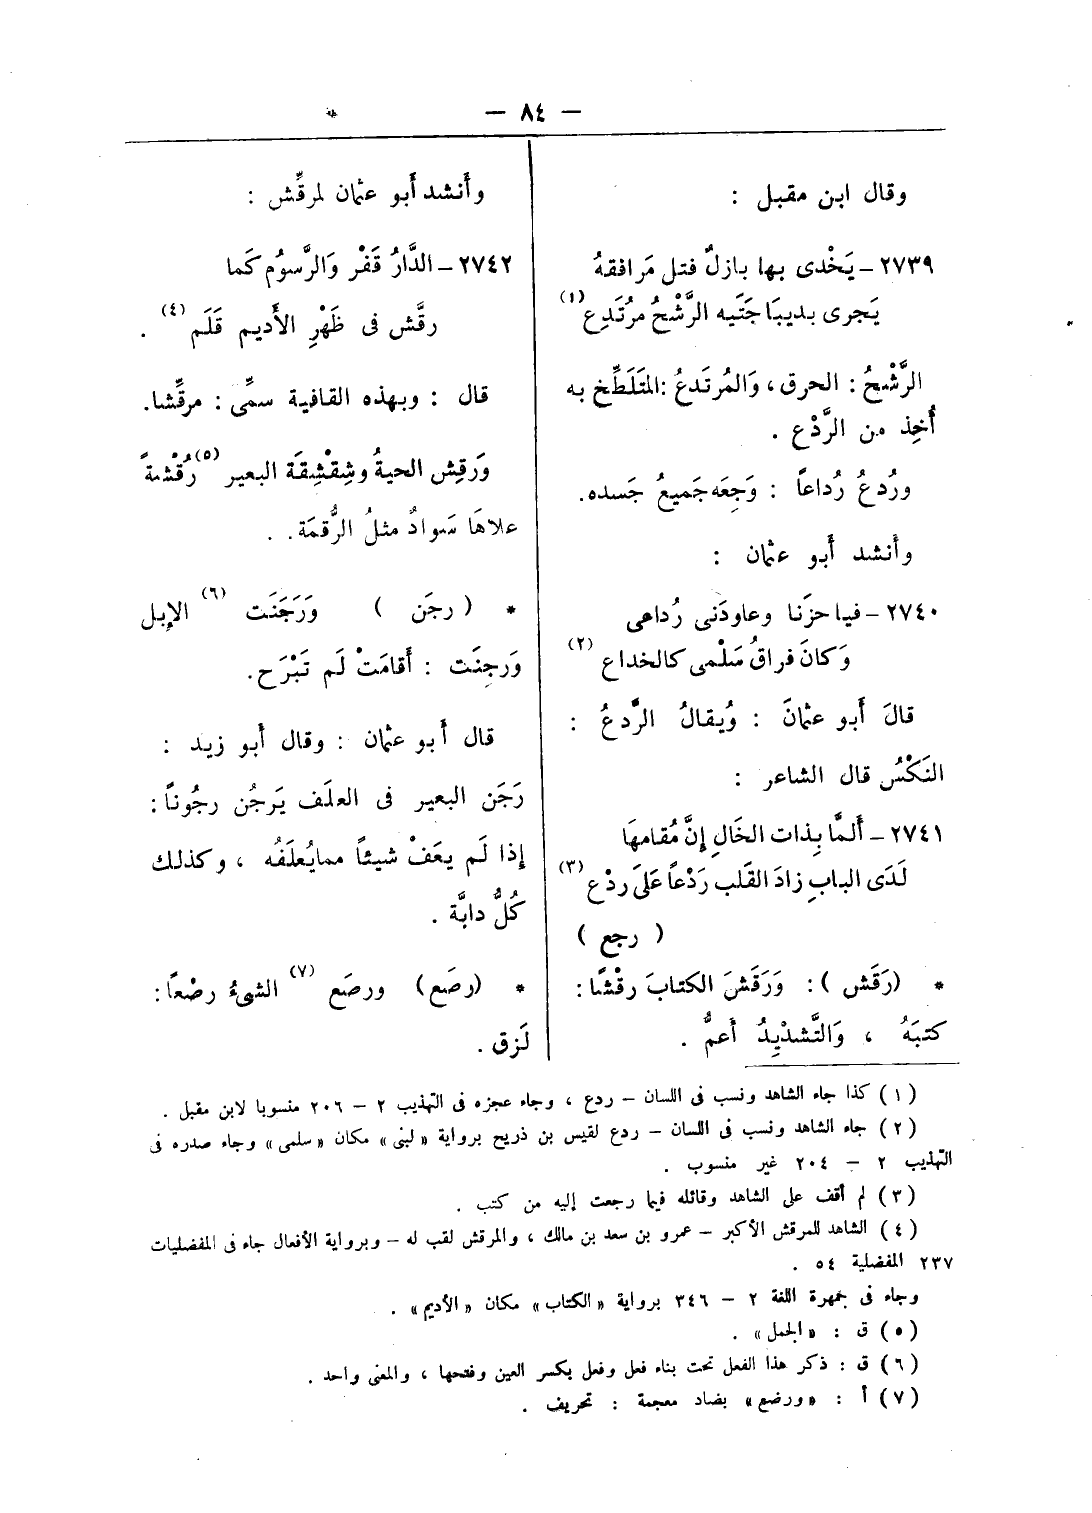 — ٨٤ —
وقال ابن مقبل :
٢٧٣٩ – يَخْدى بها بازلٌ فتل مَرافقهُ
يَجرى بديبَاجَتَيه الرَّشْحُ مرُتَدِع (١)
الرَّشْحُ : العرق ، وَالمُرتَدعُ : المتَلَطِّخ به
أُخِذ من الرَّدْع .
ورُدعُ رُداعاً : وَجِعَه جَميعُ جَسده .
وأنشد أبو عثمان :
٢٧٤٠ – فيا حزَنا وعاودَنى رُداعى
وَكانَ فراقُ سَلْمى كالخداع (٢)
قالَ أبو عثمانَ : وُيقالُ الرَّدعُ :
النَكْسُ قال الشاعر :
٢٧٤١ – ألمَّا بِذات الخَالِ إنَّ مُقامهَا
لَدَى البابِ زادَ القَلب رَدْعاً عَلَى ردْع (٣)
( رجع )
* (رَقَش ) : وَرَقَشَ الكتابَ رقْشًا :
كتبَهُ ، وَالتَّشدْيِدُ أعمُّ .
وأنشد أبو عثمان لمرقِّش :
٢٧٤٢ – الدَّارُ قَفْر وَالرَّسوُم كَما
رقَّش فى ظَهْرِ الأَديم قَلَم (٤) .
قال : وبهذه القافية سمِّى : مرقِّشا .
وَرَقِش الحيةُ وشِقْشِقَة البعير (٥) رُقْشةً
علاهَا سَوادٌ مثلُ الرُّقمَة . .
* ( رجَن ) وَرَجَنَت (٦) الإبل
وَرجِنَت : أقامَتْ لَم تَبْرَح .
قال أبو عثمان : وقال أبو زيد :
رَجَن البعير فى العلَف يَرجُن رجُوناً :
إذا لَم يعَفْ شيئاً ممايُعلَفُه ، وكذلك
كُلُّ دابَّة .
* (رصَع) ورصَع (٧) الشىءُ رصْعاً :
لَزق .
(١) كذا جاء الشاهد ونسب فى اللسان – ردع ، وجاء عجزه فى التهذيب ٢ – ٢٠٦ منسوبا لابن مقبل .
(٢) جاء الشاهد ونسب فى اللسان – ردع لقيس بن ذريح برواية «لبنى» مكان «سلمى» وجاء صدره فى
التهذيب ٢ – ٢٠٤ غير منسوب .
(٣) لم أقف على الشاهد وقائله فيما رجعت إليه من كتب .
(٤) الشاهد للمرقش الأكبر – عمرو بن سعد بن مالك ، والمرقش لقب له – وبرواية الأفعال جاء فى المفضليات
٢٣٧ المفضلية ٥٤ .
وجاء فى جمهرة اللغة ٢ – ٣٤٦ برواية «الكتاب» مكان «الأديم» .
(٥) ق : «الجمل» .
(٦) ق : ذكر هذا الفعل تحت بناء فعل وفعل بكسر العين وفتحها ، والمعنى واحد .
(٧) أ : «ورضع» بضاد معجمة : تحريف .